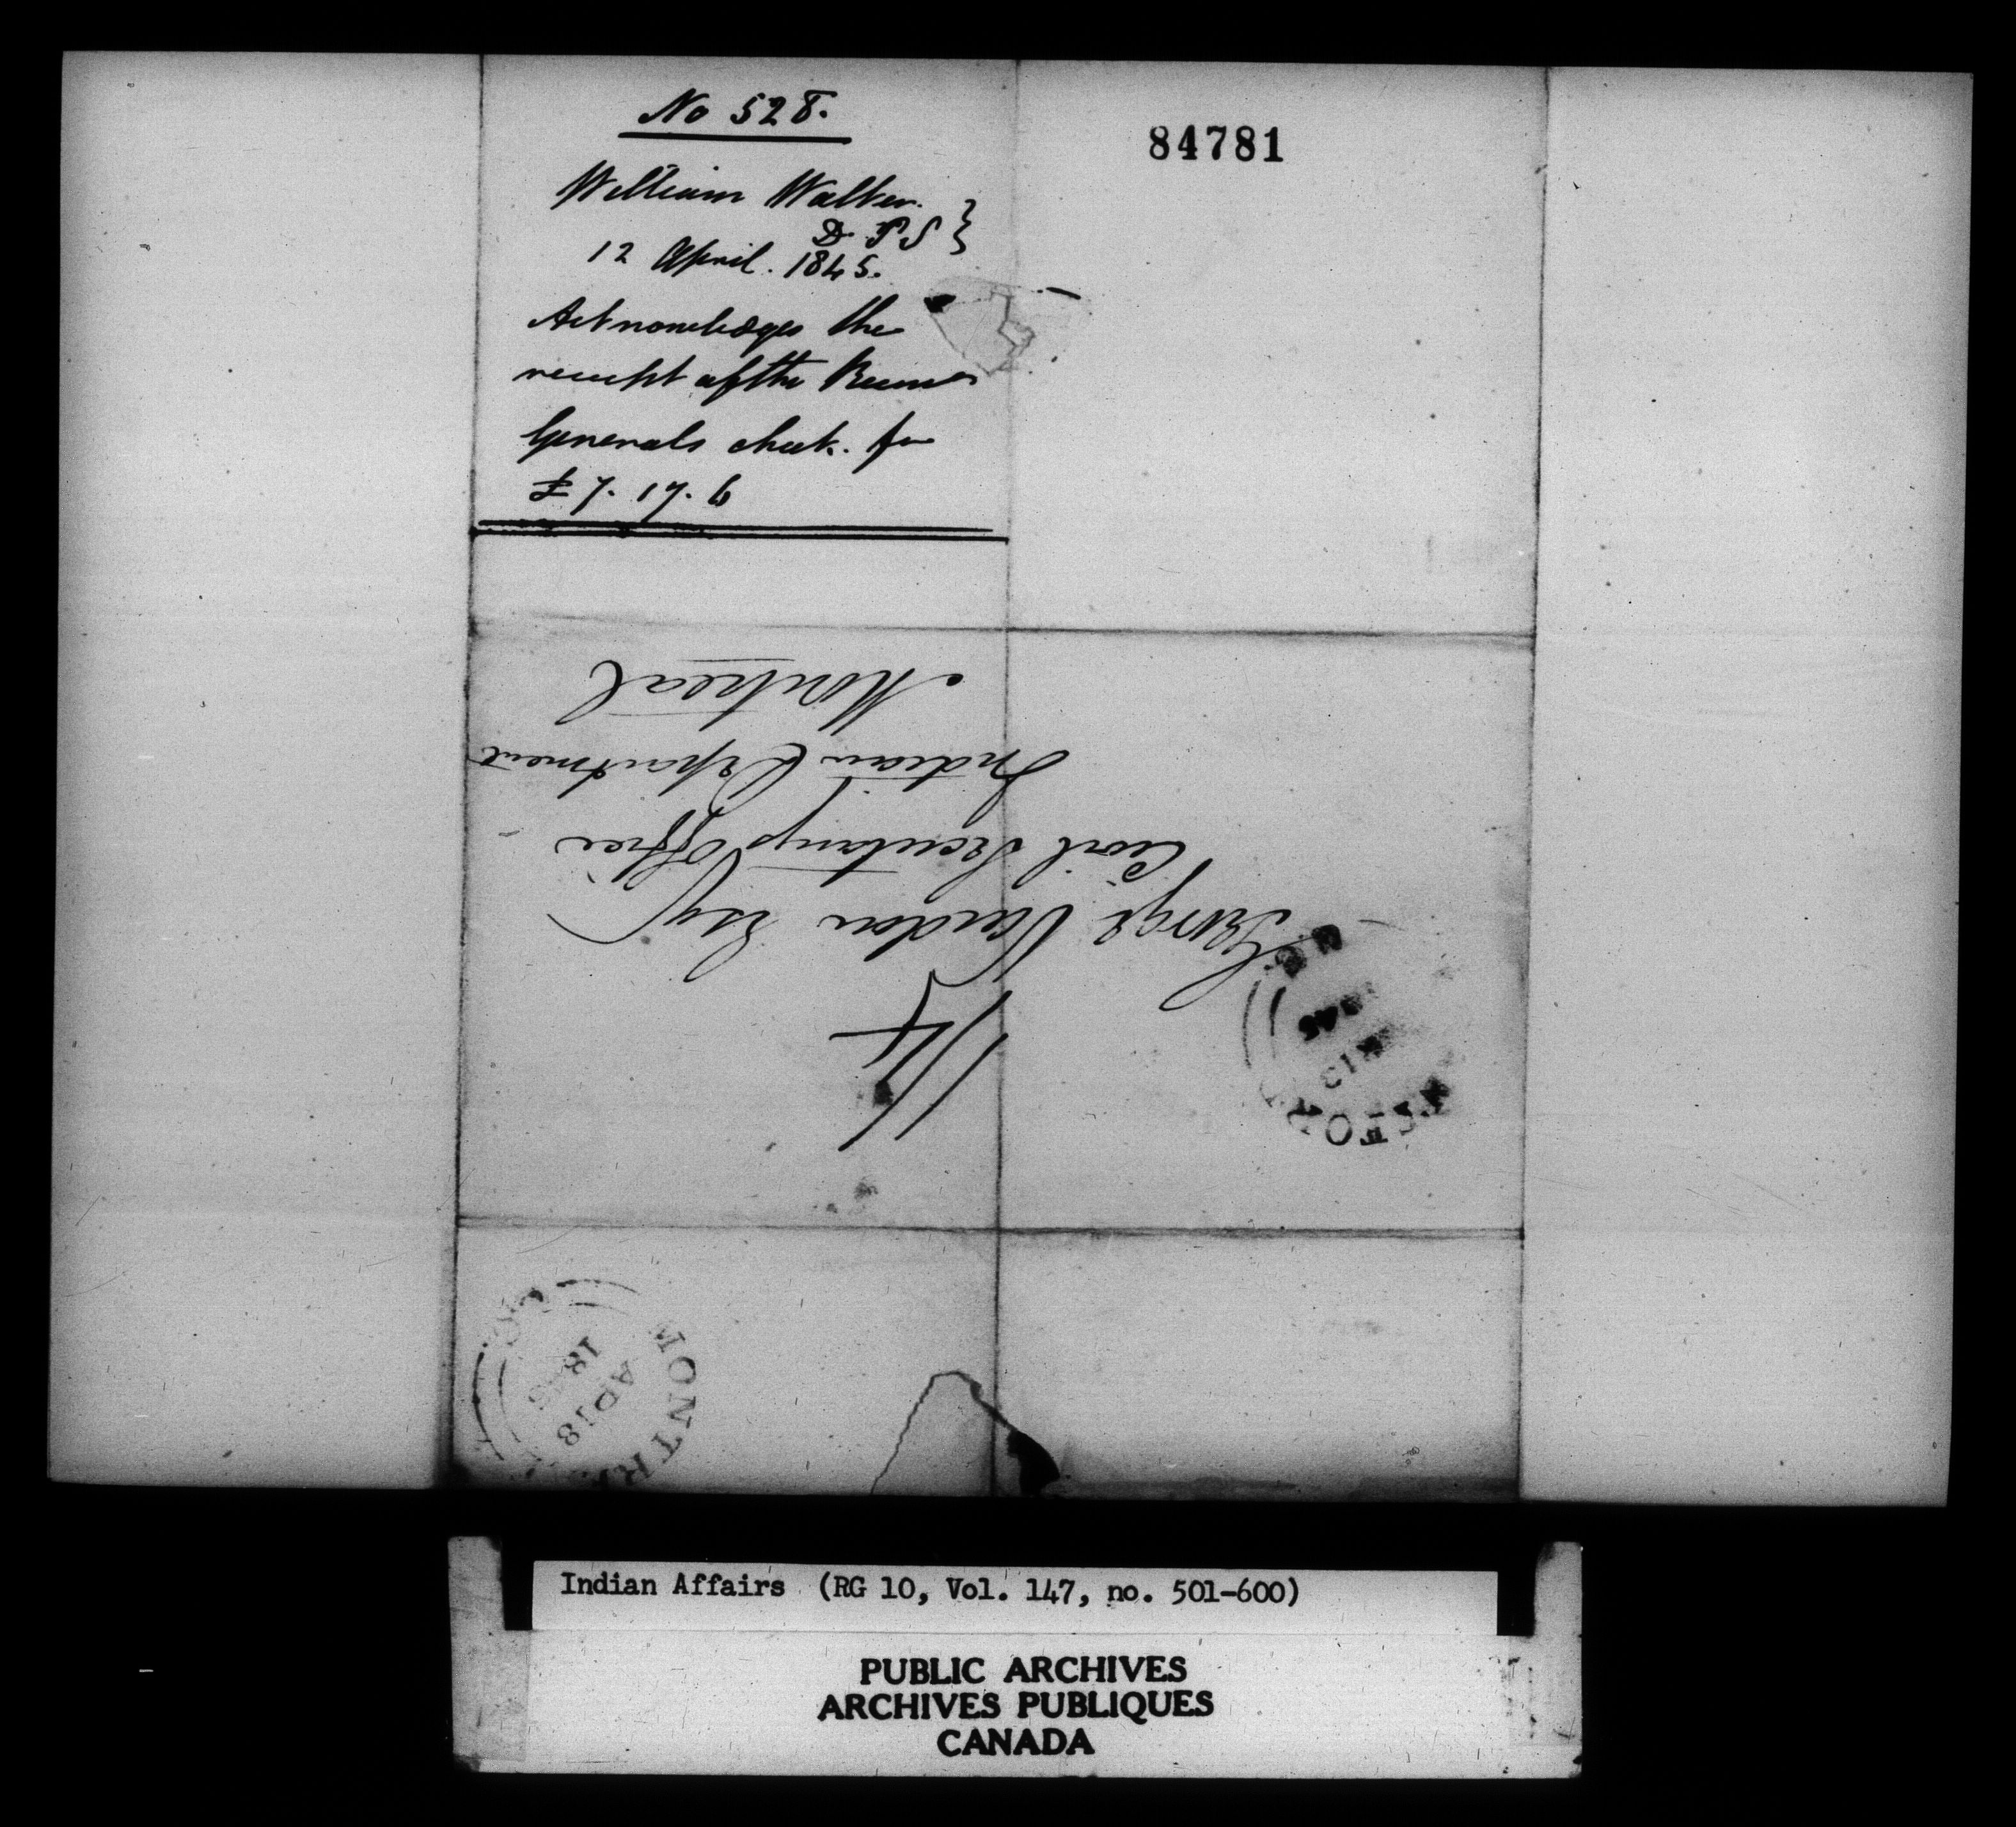 No 528.
84781
William Walker.
D. P S
12 April. 1845.
Acknowledges the
receipt of the
Generals check. for
£ 7. 17. 6
Montreal
Indian Department
Civil Secretarys Office
George Vardon Esqr
1/4
MONTR
AP 18
18
Indian Affairs (RG 10, Vol. 147, no. 501-600)
PUBLIC ARCHIVES
ARCHIVES PUBLIQUES
CANADA